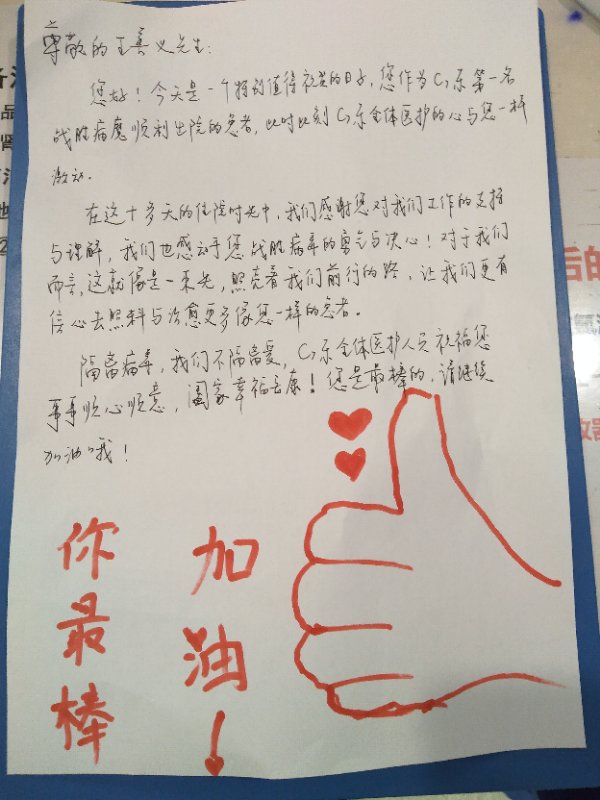 尊敬的王善义先生:
您好！今天是一个特别值得祝贺的日子,您作为C7东第一名
战胜病魔顺利出院的患者,此时此刻C7东全体医护的心与您一样
激动.
在这十多天的住院时光中,我们感谢您对我们工作的支持
与理解,我们也感动于您战胜病毒的勇气与决心！对于我们
而言,这就像是一束光,照亮着我们前行的路,让我们更有
信心去照料与治愈更多像您一样的患者。
隔离病毒,我们不隔离爱,C7东全体医护人员祝福您
事事顺心顺意,阖家幸福安康！您是最棒的,请继续
加油哦！
你最棒
加油！
后的